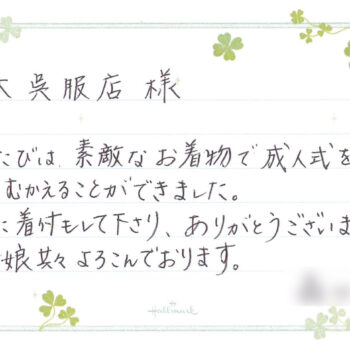 呉服店 様
たびは、素敵なお着物で成人式を
むかえることができました。
に着付もして下さり、ありがとうございま
娘共々よろこんでおります。
Hallmark